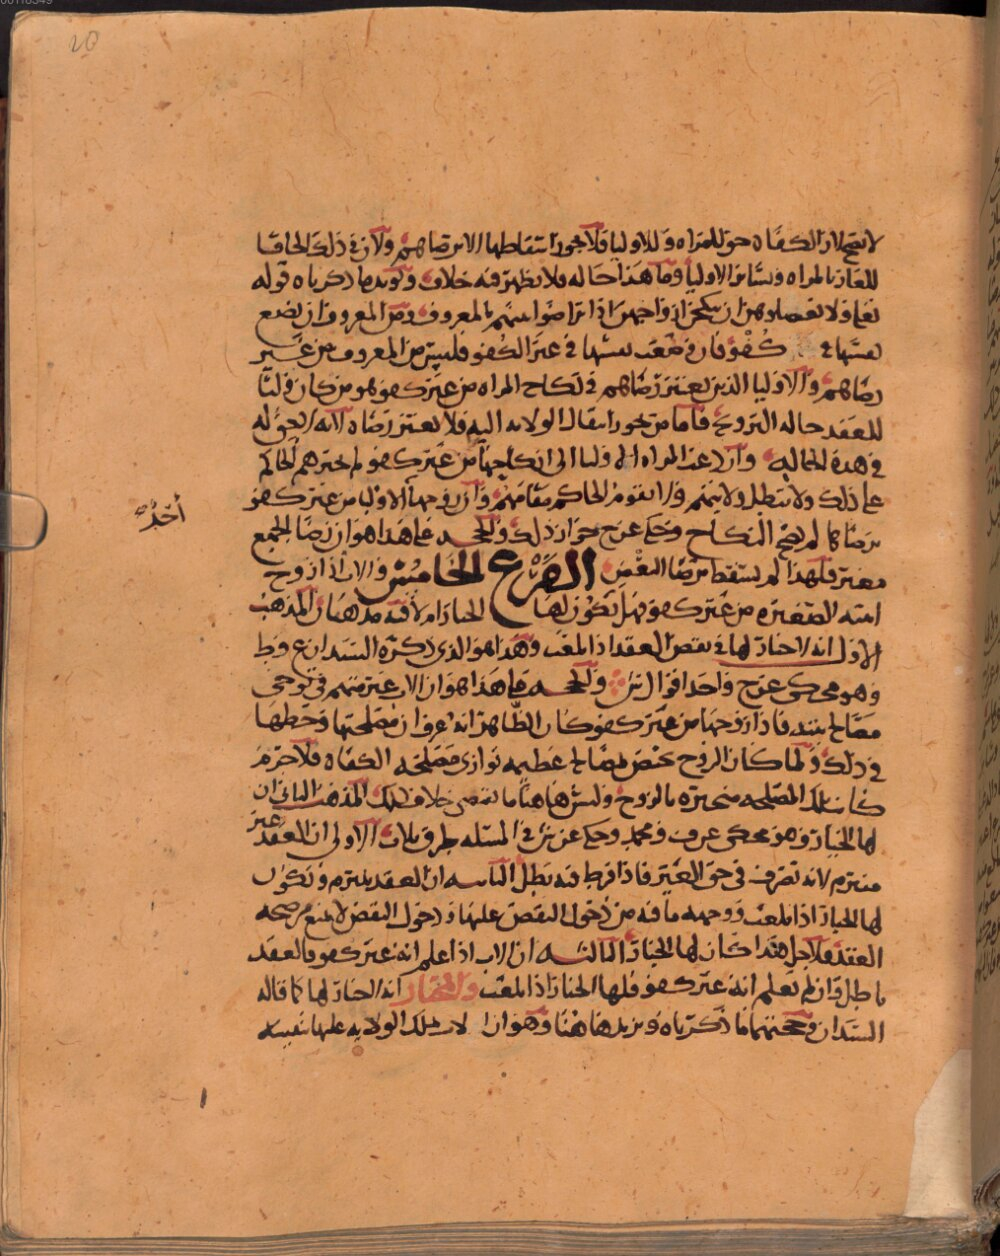 20
لا يصح لان الكفاه حق للمراه وللاوليا فلا يجوز اسقاطها الا برضاهم ولان في ذلك الحاقا
للعار بالمراه وبسائر الاوليا وما هذا حاله فلا يظهر فيه خلاف ويويد ما ذكرناه قوله
تعلى فلا تعضلوهن ان ينكحن ازواجهن اذا تراضوا بينهم بالمعروف ومن المعروف ان تضع
نفسها في كفو فان وضعت نفسها في غير الكفو فليس من المعروف من غير
رضاهم والاوليا الذين يعتبر رضاهم في نكاح المراه من غير كفو هو من كان وليا
للعقد حاله التزويج فاما من يجوز انتقال الولايه اليه فلا يعتبر رضاه لانه لا حق له
في هذه الحاله وان دعت المراه الاوليا الى انكاحها من غير كفو لم يجبرهم الحاكم
على ذلك ولا تبطل ولايتهم ولا يقوم الحاكم مقامهم وان زوجها الاوليا من غير كفو
أحد
برضاها لم يصح النكاح وحكي عن ح جواز ذلك والحجه على هذا هو ان رضا الجميع
معتبر فلهذا لم يسقط برضا البعض الفرع الخامس والاب اذا زوج
ابنته الصغيره من غير كفو فهل يكون لها الخيار ام لا فيه مذهبان المذهب
الاول انه لا خيار لها في نقض العقد اذا بلغت وهذا هو الذي ذكره السيدان ع وط
وهو محكي عن ح واحد اقوال ش والحجه على هذا هو ان الاب غير متهم في توخي
مصالح بنته فاذا زوجها من غير كفو كان الظاهر انه عرف ان مصلحتها وحظها
في ذلك ولما كان الزوج يختص بمصالح عظيمه توازي مصلحه الكفاه فلا جرم
كانت تلك المصلحه منجبره بالزوج وليس هاهنا ما يقضي خلاف ذلك المذهب الثاني ان
لها الخيار وهو محكي عن ف ومحمد وحكي عن ش في المسله طرق ثلاث الاولى ان العقد غير
منبرم لانه تصرف في حق الغير فاذا فرط فيه بطل الثانيه ان العقد ينبرم ويكون
لها الخيار اذا بلغت ووجهه ما فيه من دخول النقص عليها ودخول النقص لا يمنع من صحه
العقد فلاجل هذا كان لها الخيار الثالثه ان الاب اذا علم انه غير كفو فالعقد
باطل وان لم يعلم انه غير كفو فلها الخيار اذا بلغت والمختار انه لا خيار لها كما قاله
السيدان وحجتهما ما ذكرناه ونزيد هاهنا وهو ان الاب يملك الولايه عليها بنفسه